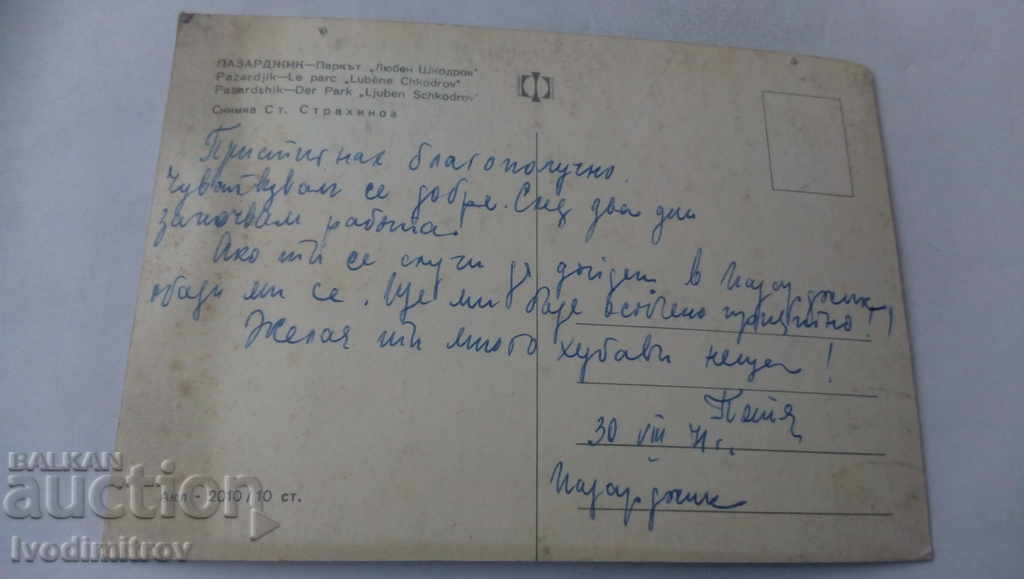 ПАЗАРДЖИК—Паркът „Любен Шкодров"
Pazardjik—Le parc „Lubène Chkodrov"
Pazardshik—Der Park „Ljuben Schkodrov"
Снимка Ст. Страхинов
Пристигнах благополучно.
Чувствувам се добре. След два дни
започвам работа.
Ако ти се случи да дойдеш в Пазарджик
обади ми се. Ще ми бъде особено приятно!
Желая ти много хубави неща!
Петя
30 VIII 71 г.
Пазарджик
Акл - 2010/10 ст.
BALKAN
auction
Ivodimitrov